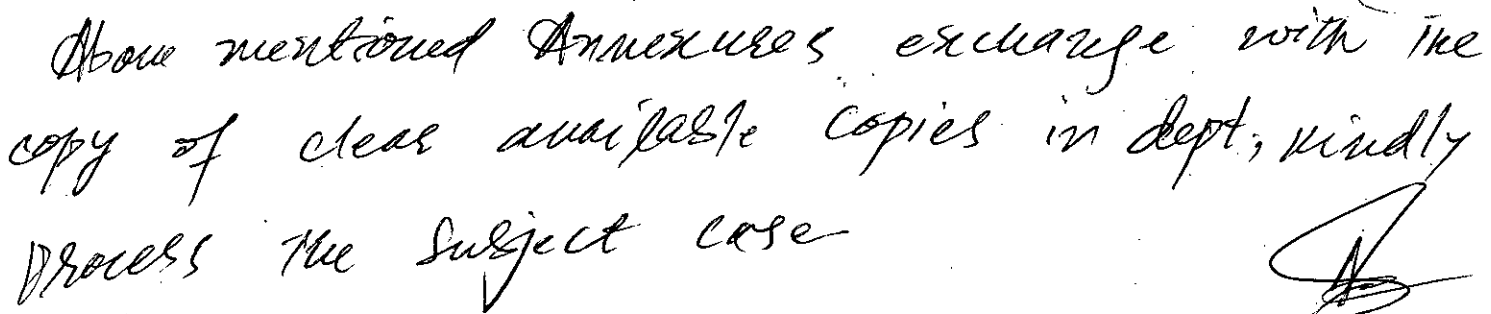 Above mentioned Annexures exchange with the
copy of clear available copies in dept, kindly
process the subject case